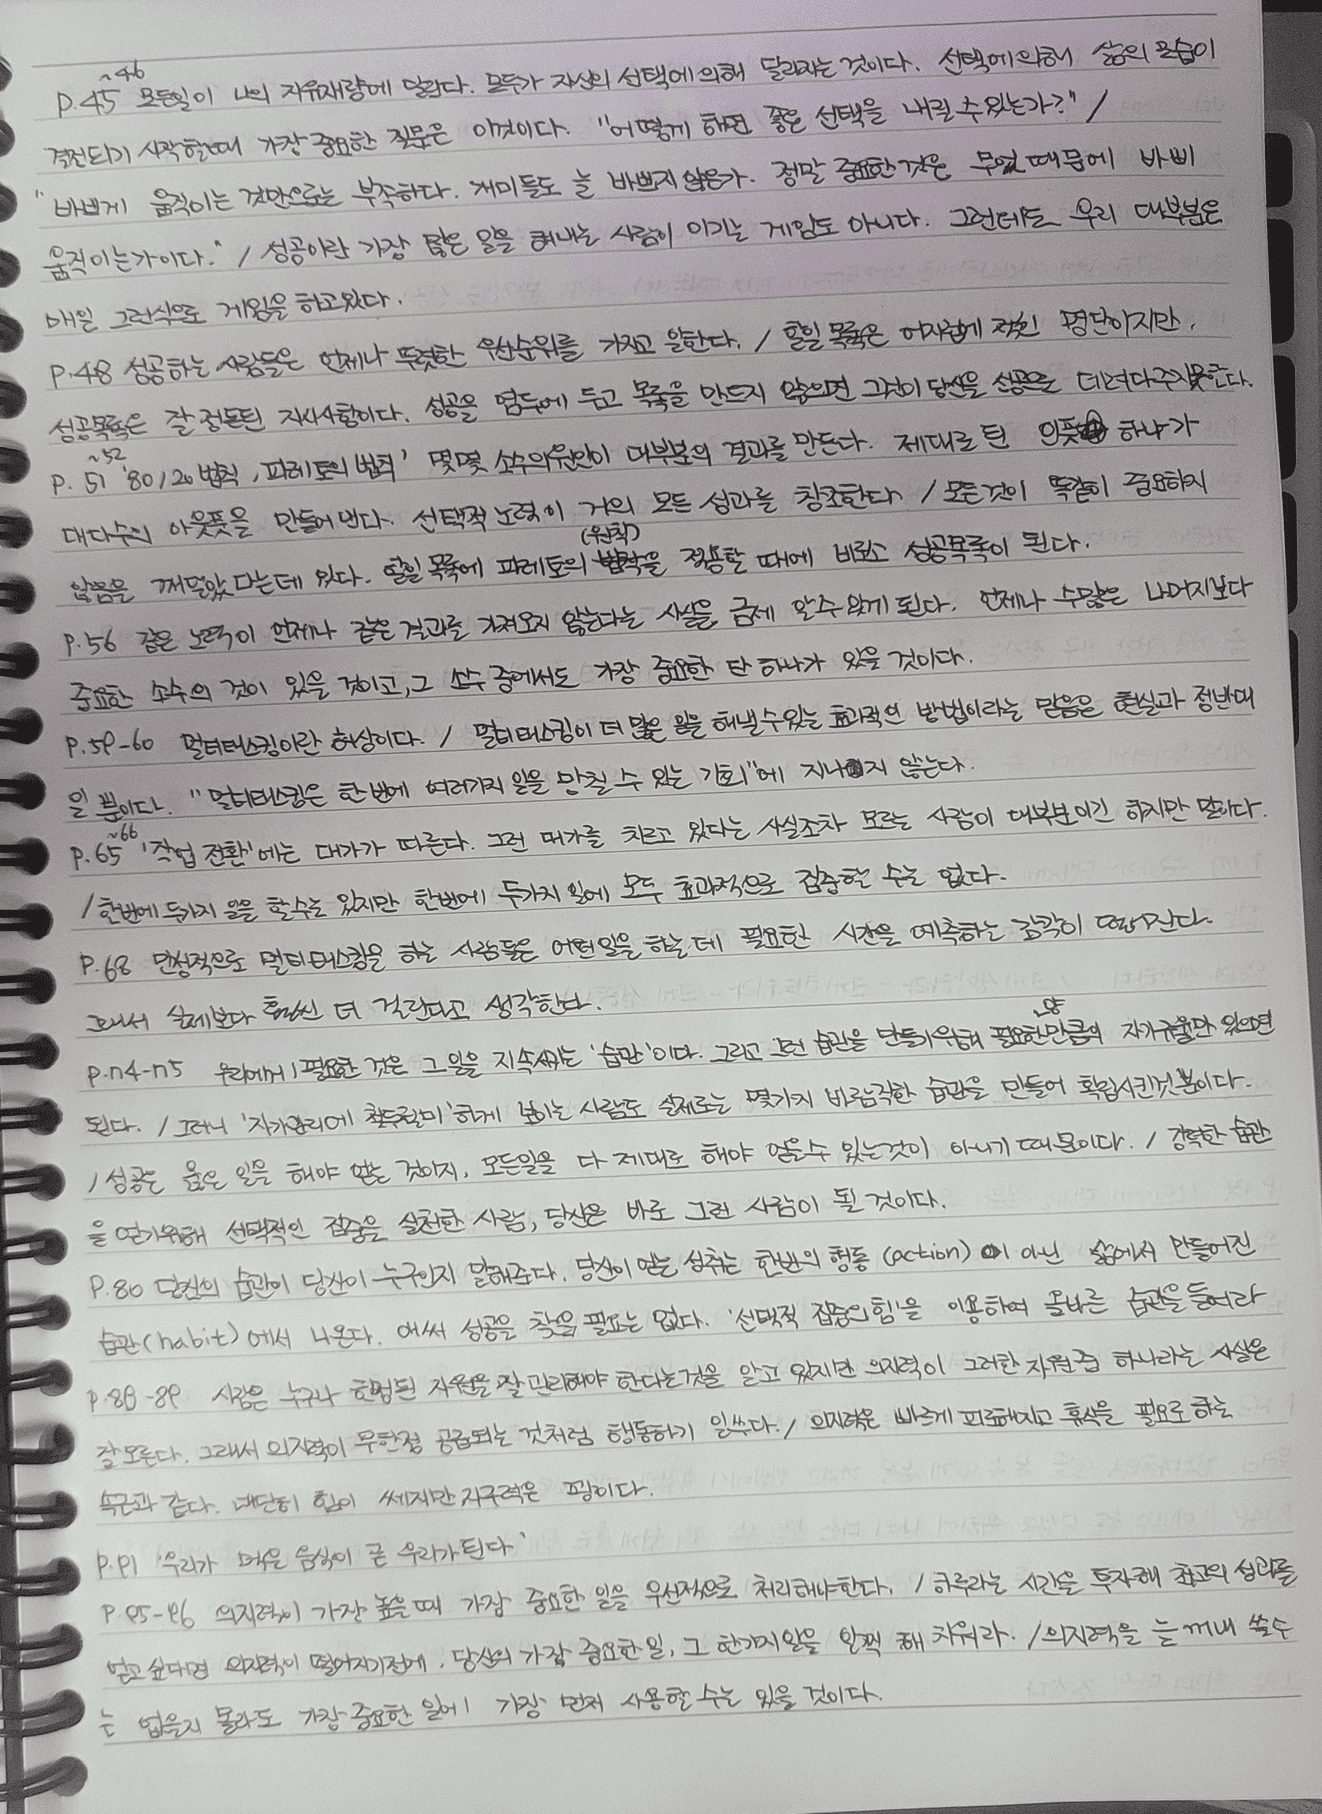 P.45~46 모든일이 나의 자유재량에 달렸다. 모두가 자신의 선택에 의해 달라지는 것이다. 선택에 의해 삶의 모습이
결정되기 시작할때 가장 중요한 질문은 이것이다. "어떻게 하면 좋은 선택을 내릴 수 있는가?" /
"바쁘게 움직이는 것만으로는 부족하다. 개미들도 늘 바쁘지 않은가. 정말 중요한 것은 무엇 때문에 바삐
움직이는가이다." / 성공이란 가장 많은 일을 해내는 사람이 이기는 게임도 아니다. 그런데도 우리 대부분은
매일 그런식으로 게임을 하고있다.
P.48 성공하는 사람들은 언제나 뚜렷한 우선순위를 가지고 일한다. / 할일 목록은 어지럽게 적힌 명단이지만,
성공목록은 잘 정돈된 지시사항이다. 성공을 염두에 두고 목록을 만들지 않으면 그것이 당신을 성공으로 데려다주지못한다.
P.51~52 '80/20 법칙, 파레토의 법칙' 몇몇 소수의원인이 대부분의 결과를 만든다. 제대로 된 인풋 하나가
대다수의 아웃풋을 만들어 낸다. 선택적 노력이 거의 모든 성과를 창조한다 / 모든것이 똑같이 중요하지
않음을 깨달았다는데 있다. 할일 목록에 파레토의 (원칙)을 적용할 때에 비로소 성공목록이 된다.
P.56 같은 노력이 언제나 같은 결과를 가져오지 않는다는 사실을 금세 알수 있게 된다. 언제나 수많은 나머지보다
중요한 소수의 것이 있을 것이고, 그 소수 중에서도 가장 중요한 단 하나가 있을 것이다.
P.59-60 멀티태스킹이란 허상이다. / 멀티태스킹이 더 많은 일을 해낼 수 있는 효과적인 방법이라는 믿음은 현실과 정반대
일 뿐이다. "멀티태스킹은 한번에 여러가지 일을 망칠 수 있는 기회"에 지나지 않는다.
P.65~66 '작업 전환'에는 대가가 따른다. 그런 대가를 치르고 있다는 사실조차 모르는 사람이 대부분이긴 하지만 말이다.
/ 한번에 두가지 일을 할수는 있지만 한번에 두가지 일에 모두 효과적으로 집중할 수는 없다.
P.68 만성적으로 멀티태스킹을 하는 사람들은 어떤일을 하는데 필요한 시간을 예측하는 감각이 떨어진다.
그래서 실제보다 훨씬 더 걸린다고 생각한다.
P.74-75 우리에게 필요한 것은 그 일을 지속시키는 '습관'이다. 그리고 그런 습관을 만들기위해 필요한만큼의 자기규율만 있으면
된다. / 그러니 '자기관리에 철두철미'하게 보이는 사람도 실제로는 몇가지 바람직한 습관을 만들어 확립시킨것뿐이다.
/ 성공은 옳은 일을 해야 얻는 것이지, 모든일을 다 제대로 해야 얻을수 있는것이 아니기 때문이다. / 강력한 습관
을 얻기위해 선택적인 집중을 실천한 사람, 당신은 바로 그런 사람이 될 것이다.
P.80 당신의 습관이 당신이 누구인지 말해준다. 당신이 얻는 성취는 한번의 행동(action)이 아닌 삶에서 만들어진
습관(habit)에서 나온다. 애써 성공을 찾을 필요는 없다. '선택적 집중의 힘'을 이용하여 올바른 습관을 들여라
P.88-89 사람은 누구나 한정된 자원을 잘 관리해야 한다는것을 알고 있지만 의지력이 그러한 자원중 하나라는 사실은
잘 모른다. 그래서 의지력이 무한정 공급되는 것처럼 행동하기 일쑤다. / 의지력은 빠르게 피로해지고 휴식을 필요로 하는
속근과 같다. 대단히 힘이 쎄지만 지구력은 꽝이다.
P.91 '우리가 먹은 음식이 곧 우리가 된다'
P.95-96 의지력이 가장 높을때 가장 중요한 일을 우선적으로 처리해야한다. / 하루라는 시간을 투자해 최고의 성과를
얻고 싶다면 의지력이 떨어지기전에, 당신의 가장 중요한 일, 그 한가지일을 일찍 해 치워라. / 의지력을 늘 꺼내 쓸수
는 없을지 몰라도 가장 중요한 일에 가장 먼저 사용할 수는 있을 것이다.